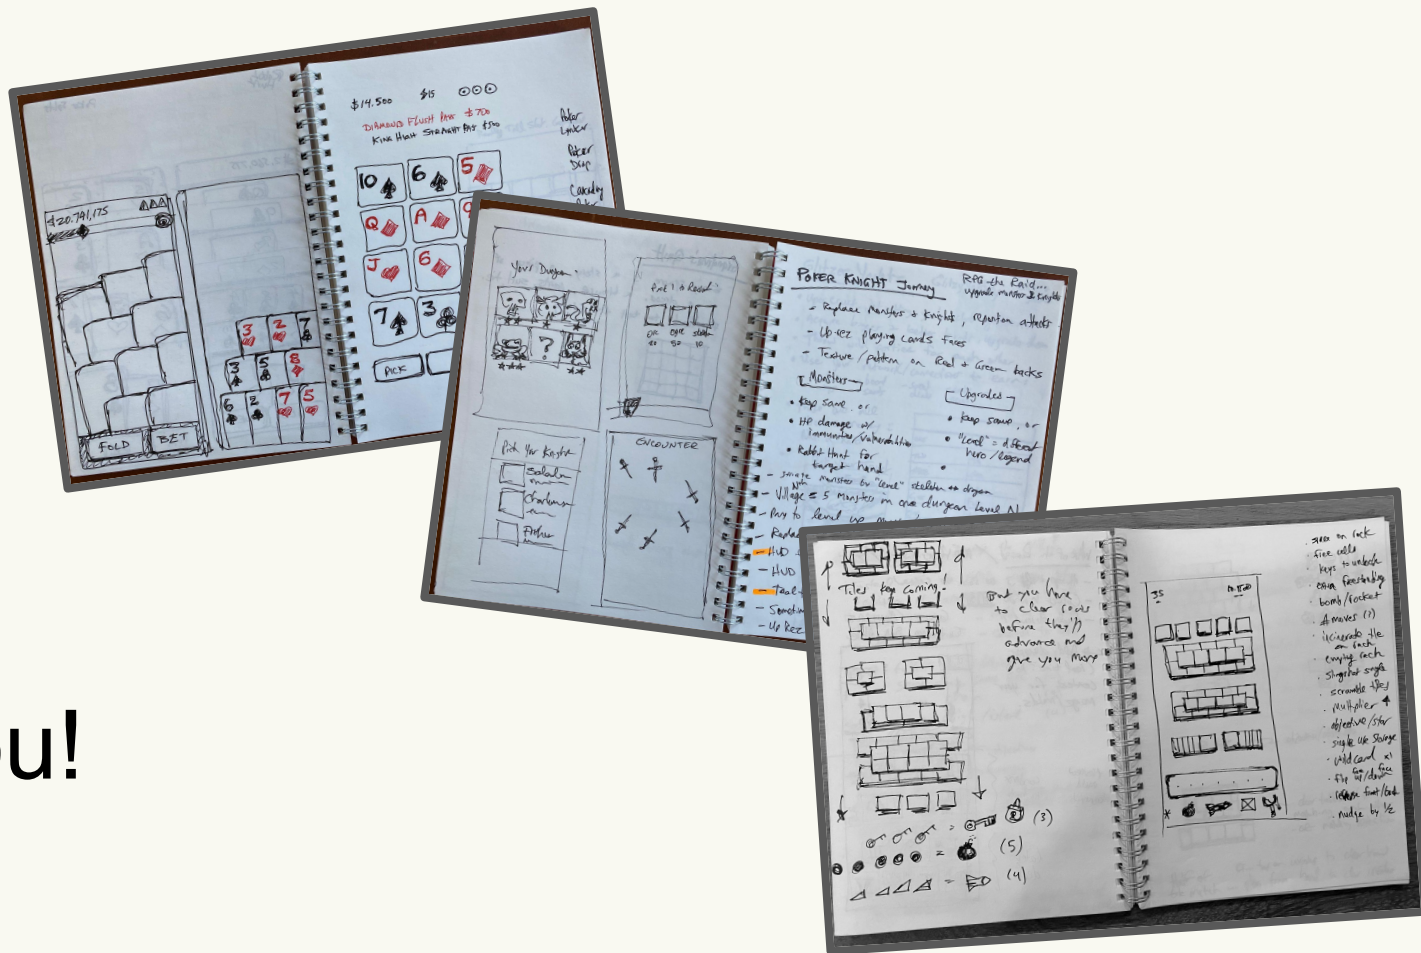 $20.791,175
FOLD BET
3 2 7
3 5 8
6 2 7 5
$14.500 $15
DIAMOND FLUSH PAYS $700
KING HIGH STRAIGHT PAYS $500
10 6 5
Q A 9
J 6
7 3
PICK
Poker
Poker
Drop
Cascading
Your Dungeon
?
Pick 1 to Recruit
orc ogre skeleton
Pick Your Knight
Saladin
Charlemagne
Arthur
ENCOUNTER
POKER KNIGHT Journey
RPG the Raid...
upgrade monster & knights
- Replace Monsters & Knights, reposition attacks
- Up-rez playing cards faces
- Texture/pattern on Red & Green backs
Monsters
• Keep same, or
• HP damage w/
immunities/vulnerabilities
• Rabbit Hunt for
target hand
Upgrades
• Keep same, or
• "Level" = different
hero/legend
•
monsters by "level" skeleton dragon
- Village = 5 Monsters in one dungeon level
- Pay to level up
- HUD
- HUD
- Up Rez
Tiles keep coming!
But you have
to clear
before they'll
advance and
give you more
= (3)
= (5)
= (4)
35
• on rack
• free cells
• keys to unlock
• extra freestanding
• bomb/rocket
• # moves (?)
• incinerate tile
on rack
• empty rack
• slingshot single
• scramble tiles
• Multiplier
• objective/star
• single use storage
• wildcard x1
• flip up/down
• front/back
• nudge by 1/2
u!